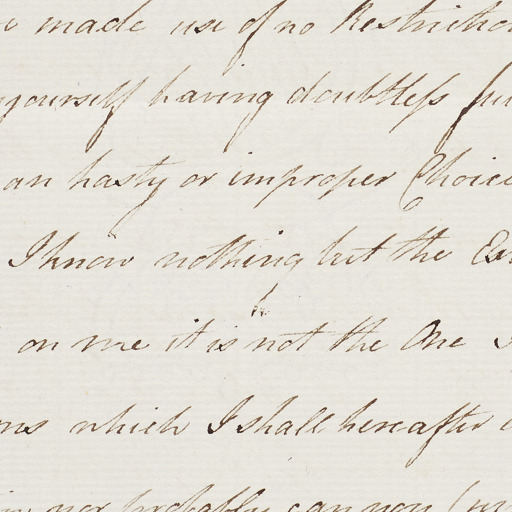 made use of no Restriction
yourself having doubtless
an hasty or improper Choice
I know nothing but the
on me it is not the One
which I shall hereafter
nor probably can you